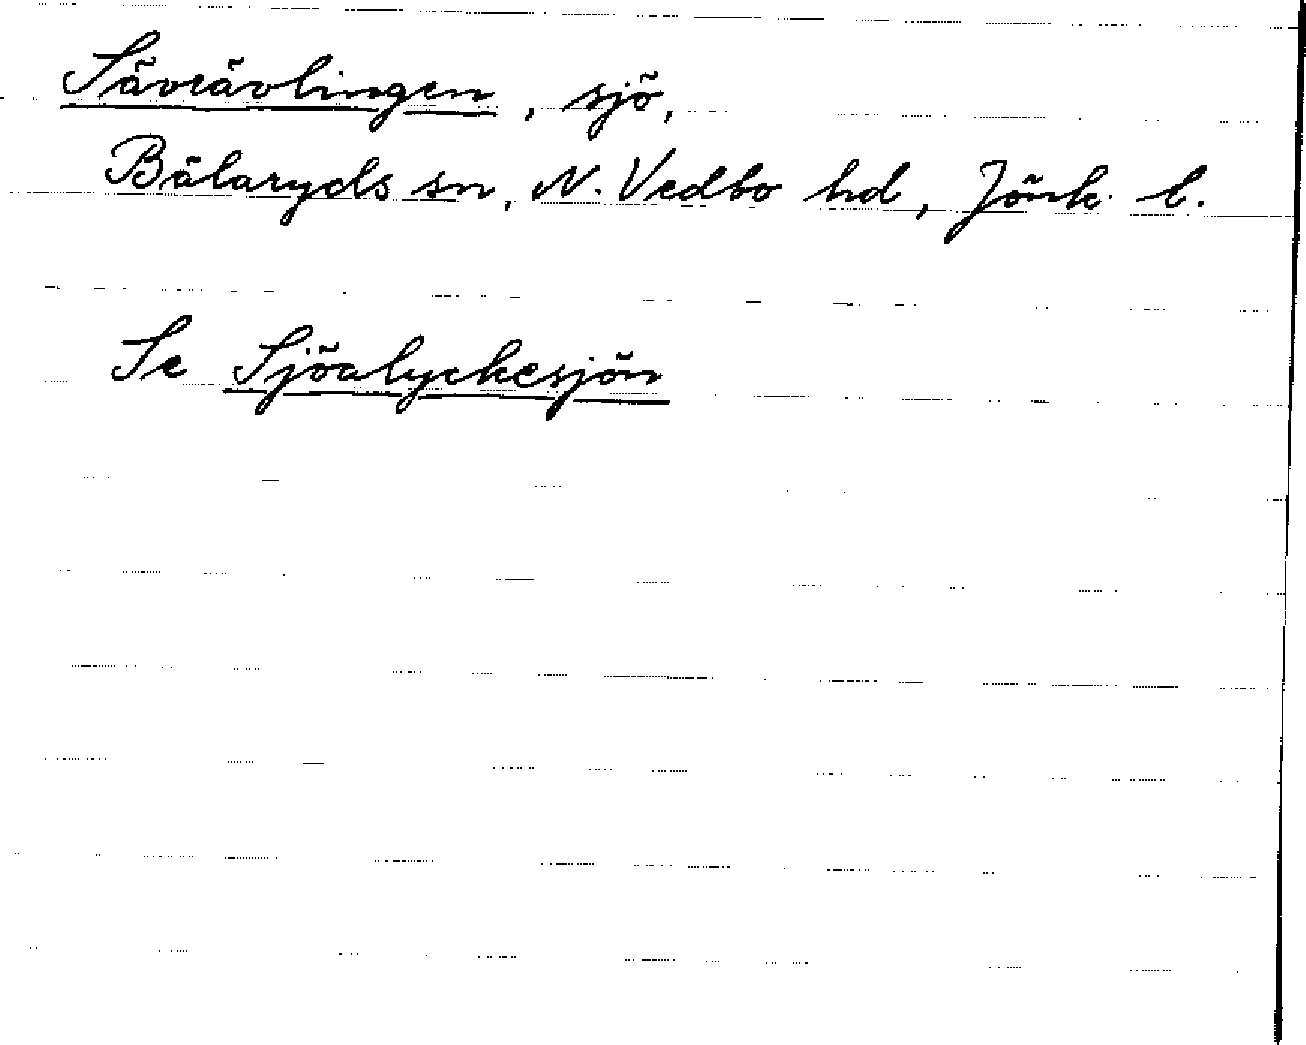 Sävrävlingen, sjö,
Bälaryds sn, N. Vedbo hd, Jönk. l.
Se Sjöalyckesjön